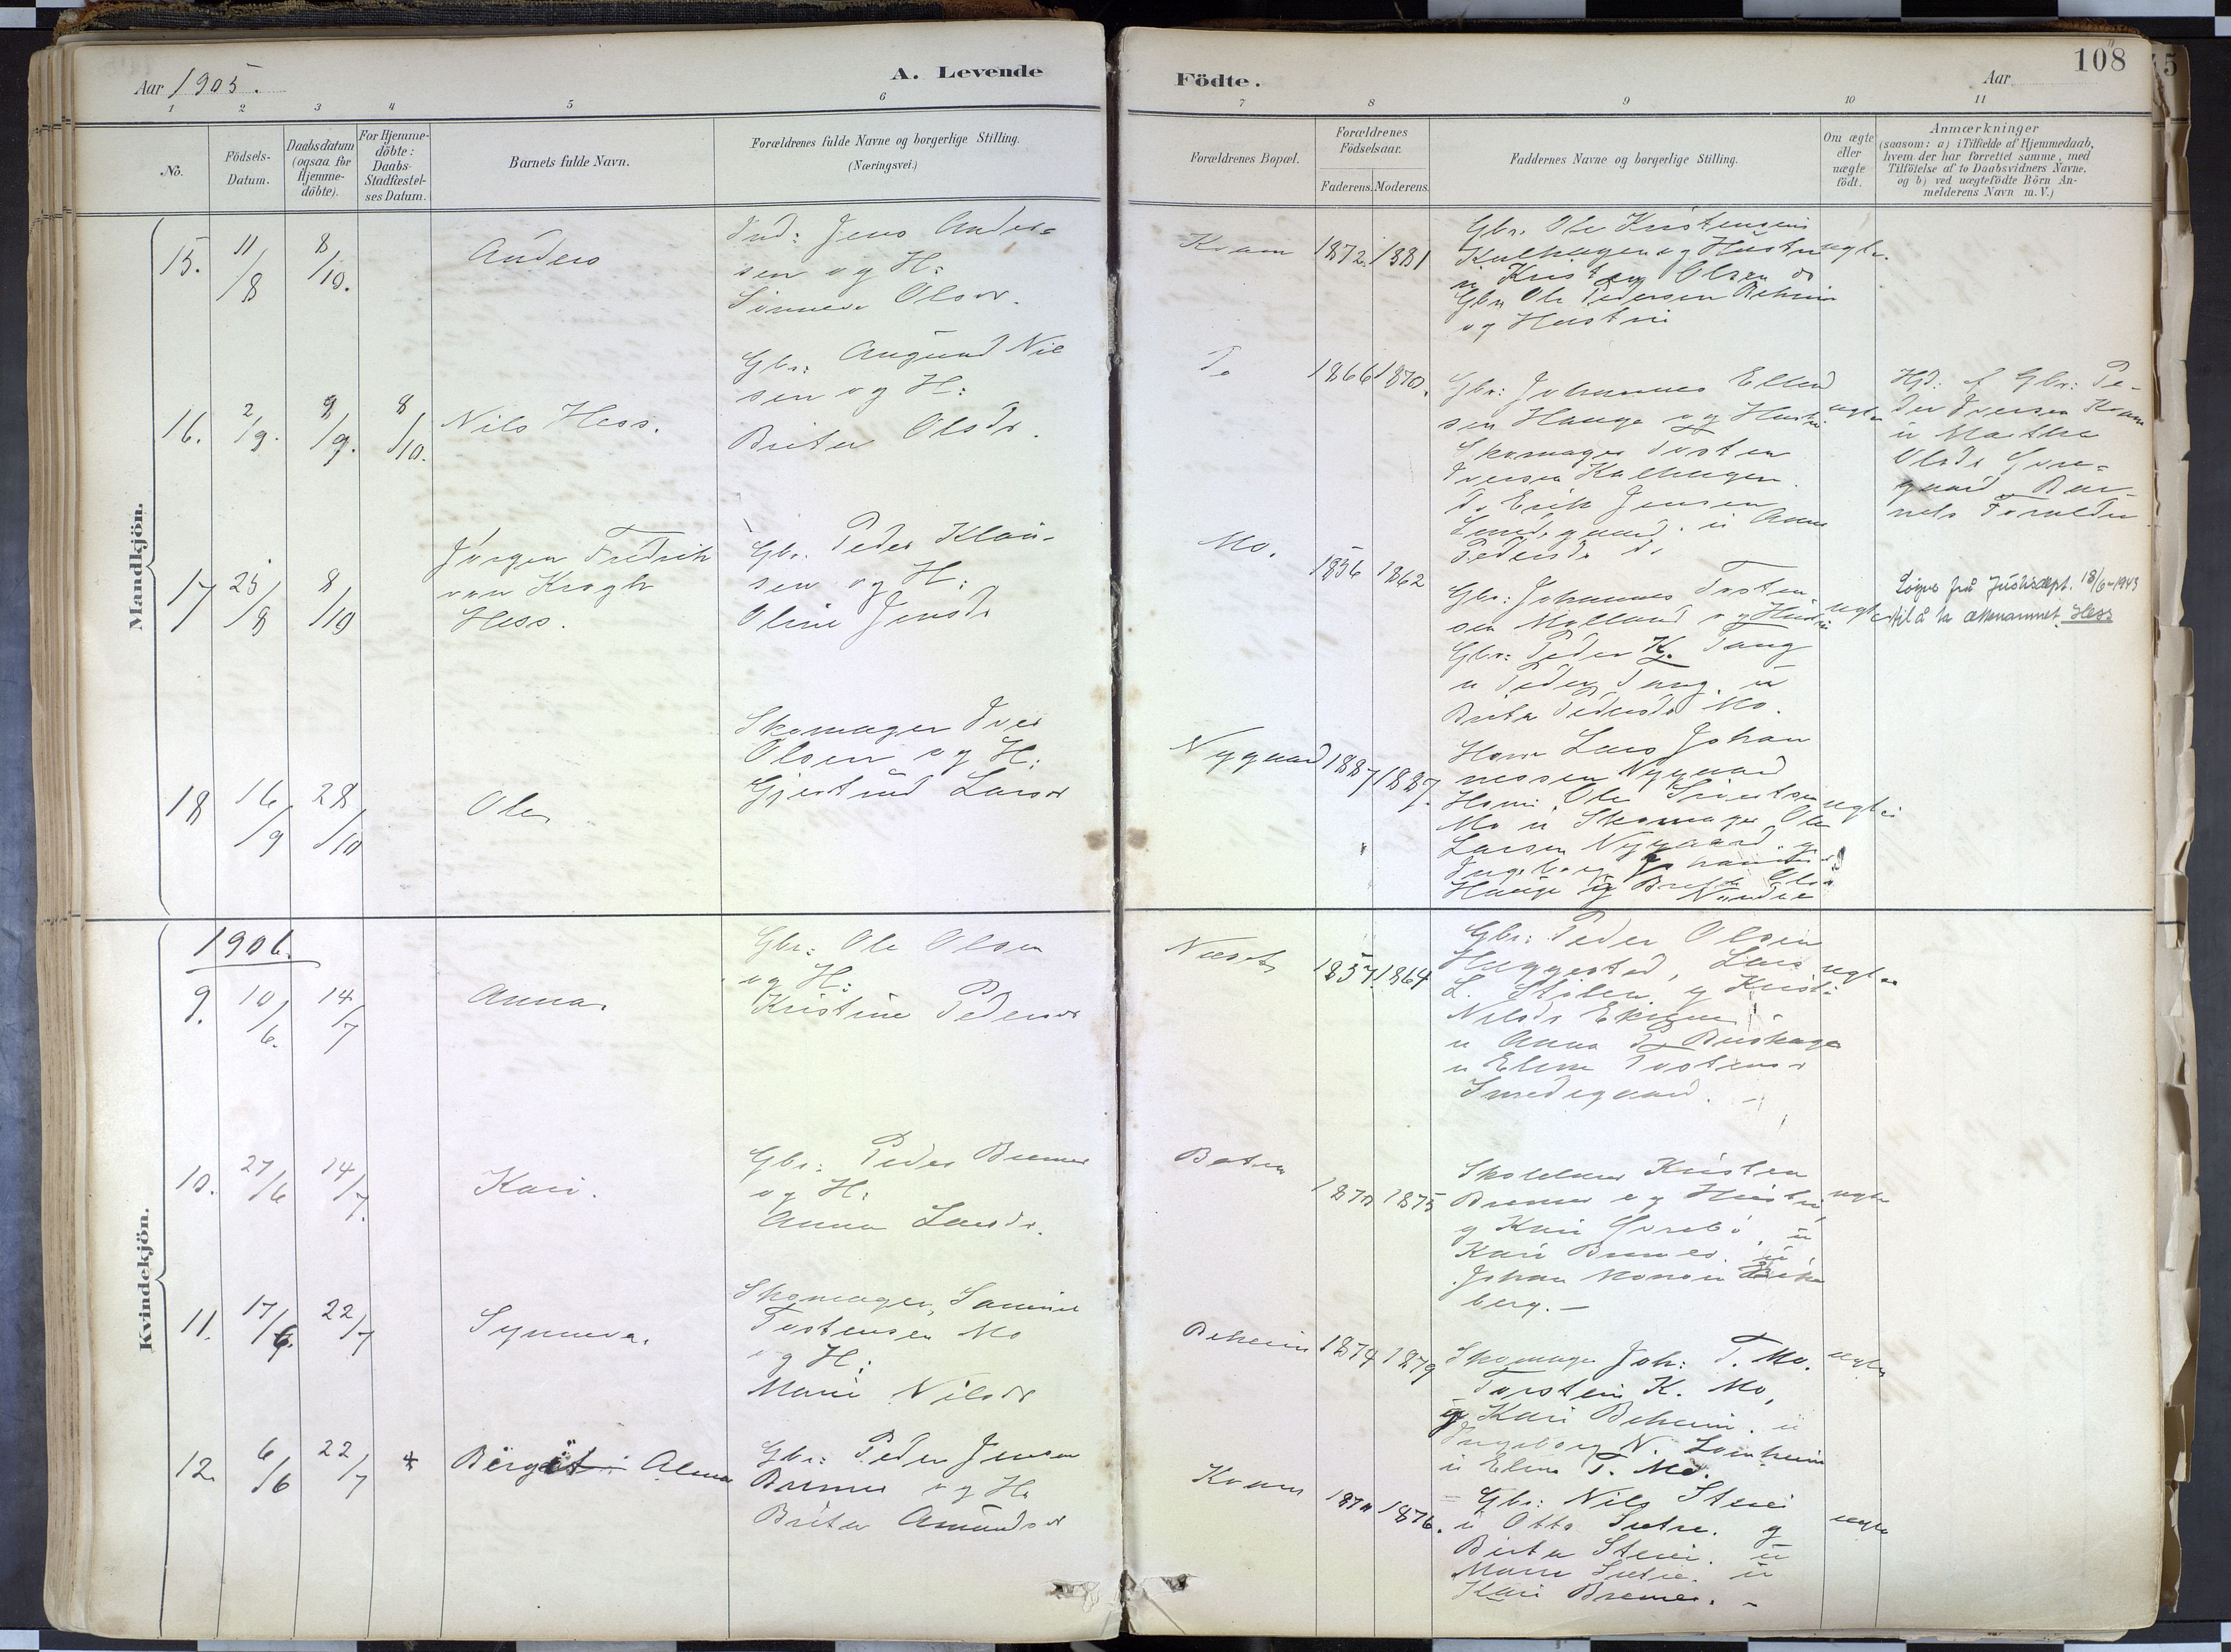 Aar 1905.
A. Levende
1 2 3 4 5 6
No.
Födsels-
Datum.
Daabsdatum
(ogsaa for
Hjemme-
döbte).
For Hjemme-
döbte:
Daabs-
Stadfæstel-
ses Datum.
Barnets fulde Navn.
Forældrenes fulde Navne og borgerlige Stilling.
(Næringsvei.)
Mandkjön.
15. 11/8 8/10. Anders
Ind: Jens Ander=
sen og H:
Olsdr.
16. 2/9. 9/9. 8/10. Nils Hess.
Gbr: Amund Nil
sen og H:
Brita Olsdr.
17 25/8 8/10
Jørgen Fredrik
von Krogh
Hess.
Gbr. Peder Klau-
sen og H:
Oline Jensdr
18 16/9 28/10 Ole
Skomager Iver
Olsen og H:
Gjertrud Larsdr
Kvindekjön.
1906.
9. 10/6. 14/7 Anna.
Gbr: Ole Olsen
og H:
Kristine Pedersdr
10. 27/6 14/7. Kari.
Gbr: Peder Bremer
og H:
Anna Larsdr.
11. 17/6. 22/7 Synneva.
Skomager,
Tostensen Mo
og H:
Marie Nilsdr
12. 6/6 22/7 Birgit Alma
Gbr: Peder Jensen
Bremer og H:
Brita Amundsdr
Födte.
Aar
108
7 8 9 10 11
Forældrenes Bopæl.
Forældrenes
Födselsaar.
Faderens. Moderens.
Faddernes Navne og borgerlige Stilling.
Om ægte
eller
uægte
födt.
Anmærkninger
(saasom: a) i Tilfælde af Hjemmedaab,
hvem der har forrettet samme, med
Tilföielse af to Daabsvidners Navne,
og b) ved uægtefödte Börn An-
melderens Navn m. V.)
Kvam 1872. 1881
Gbr. Ole Kristensen
Kalhagen og Hustru ægte.
Olsen do
Gbr Ole Pedersen Beheim
og Hustru
Do 1866 1870.
Gbr: Johannes Ellend
sen Hauge og Hustru ægte
Skomager Tosten
Iversen Kalhagen.
Do Erik Jensen
Smedegaard. u Anna
Pedersdr do
Hjd: af Gbr: Pe-
der Iversen Kvam
u Martha
Olsdr
Bar-
nets Forældre
Mo. 1856 1862
Gbr: Johannes Tosten
sen Molland og Hustru ægte
Gbr: Peder K. Tang
u Peder Tang. u
Brita Pedersdr Mo.
Løyve frå Justisdept. 18/6-1943
til å ta ættenamnet Hess
Nygaard 1887 1887.
Lars Johan
nessen Nygaard
Ole Sivertsen ægte
Mo u Skomager Ole
Larsen Nygaard. og
Ingeborg
Hauge og Brita
Næset 1857. 1864
Gbr: Peder Olsen
Haggestad, Lars ægte
L. Stølen og Krist:
Nilsdr
u Anna
u Elen Tostensdr
Smedegaard. -
1870 1875
Kristen
Bremer og Hustru, ægte
og Kari
Kari Bremer. u
Johan Monsen
berg. -
Beheim 1874 1879
Skomager Joh: T. Mo. ægte
Torstein K. Mo,
og Kari Beheim. u
Ingeborg N.
u Elen T. Mo.
Kvam 1870 1876.
Gbr: Nils
u Otto Sætre. og ægte
Brita u
Marie Sætre. u
Kari Bremer. -